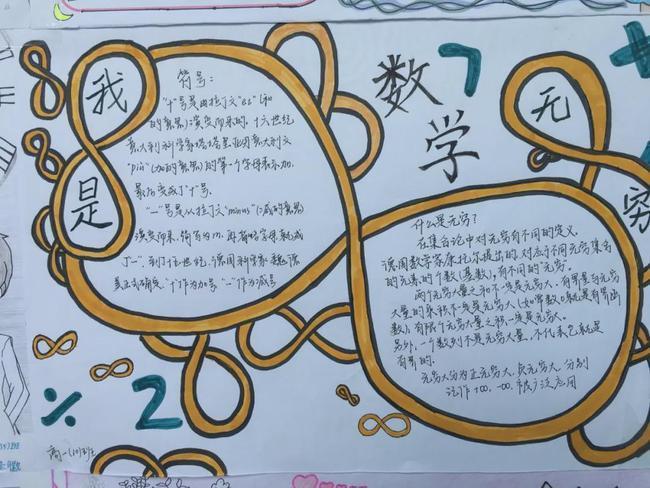 我
是
数
学
无
穷
7
符号:
"十"号是由拉丁文"et"(和
的意思)演变而来的。十六世纪
意大利科学家塔塔里亚用意大利文
"più"(加的意思)的第一个字母表示加,
最后变成了"十"号.
"一"号是从拉丁文"minus"(减的意思)
演变而来,简写为m,再省略字母,就成
了"一".到了十五世纪,德国科学家魏德
美正式确定:"十"作为加号,"一"作为减号
什么是无穷?
在集合论中对无穷有不同的定义.
德国数学家康托尔提出的,对应于不同无穷集合
的元素的个数(基数),有不同的"无穷".
两个无穷大量之和不一定是无穷大,有界量与无穷
大量的乘积不一定是无穷大(如常数0就是有界函
数),有限个无穷大量之积一定是无穷大。
另外,一个数列不是无穷大量,不代表它就是
有界的.
无穷大分为正无穷大、负无穷大,分别
记作+∞、-∞,
÷
2
高一(10)班